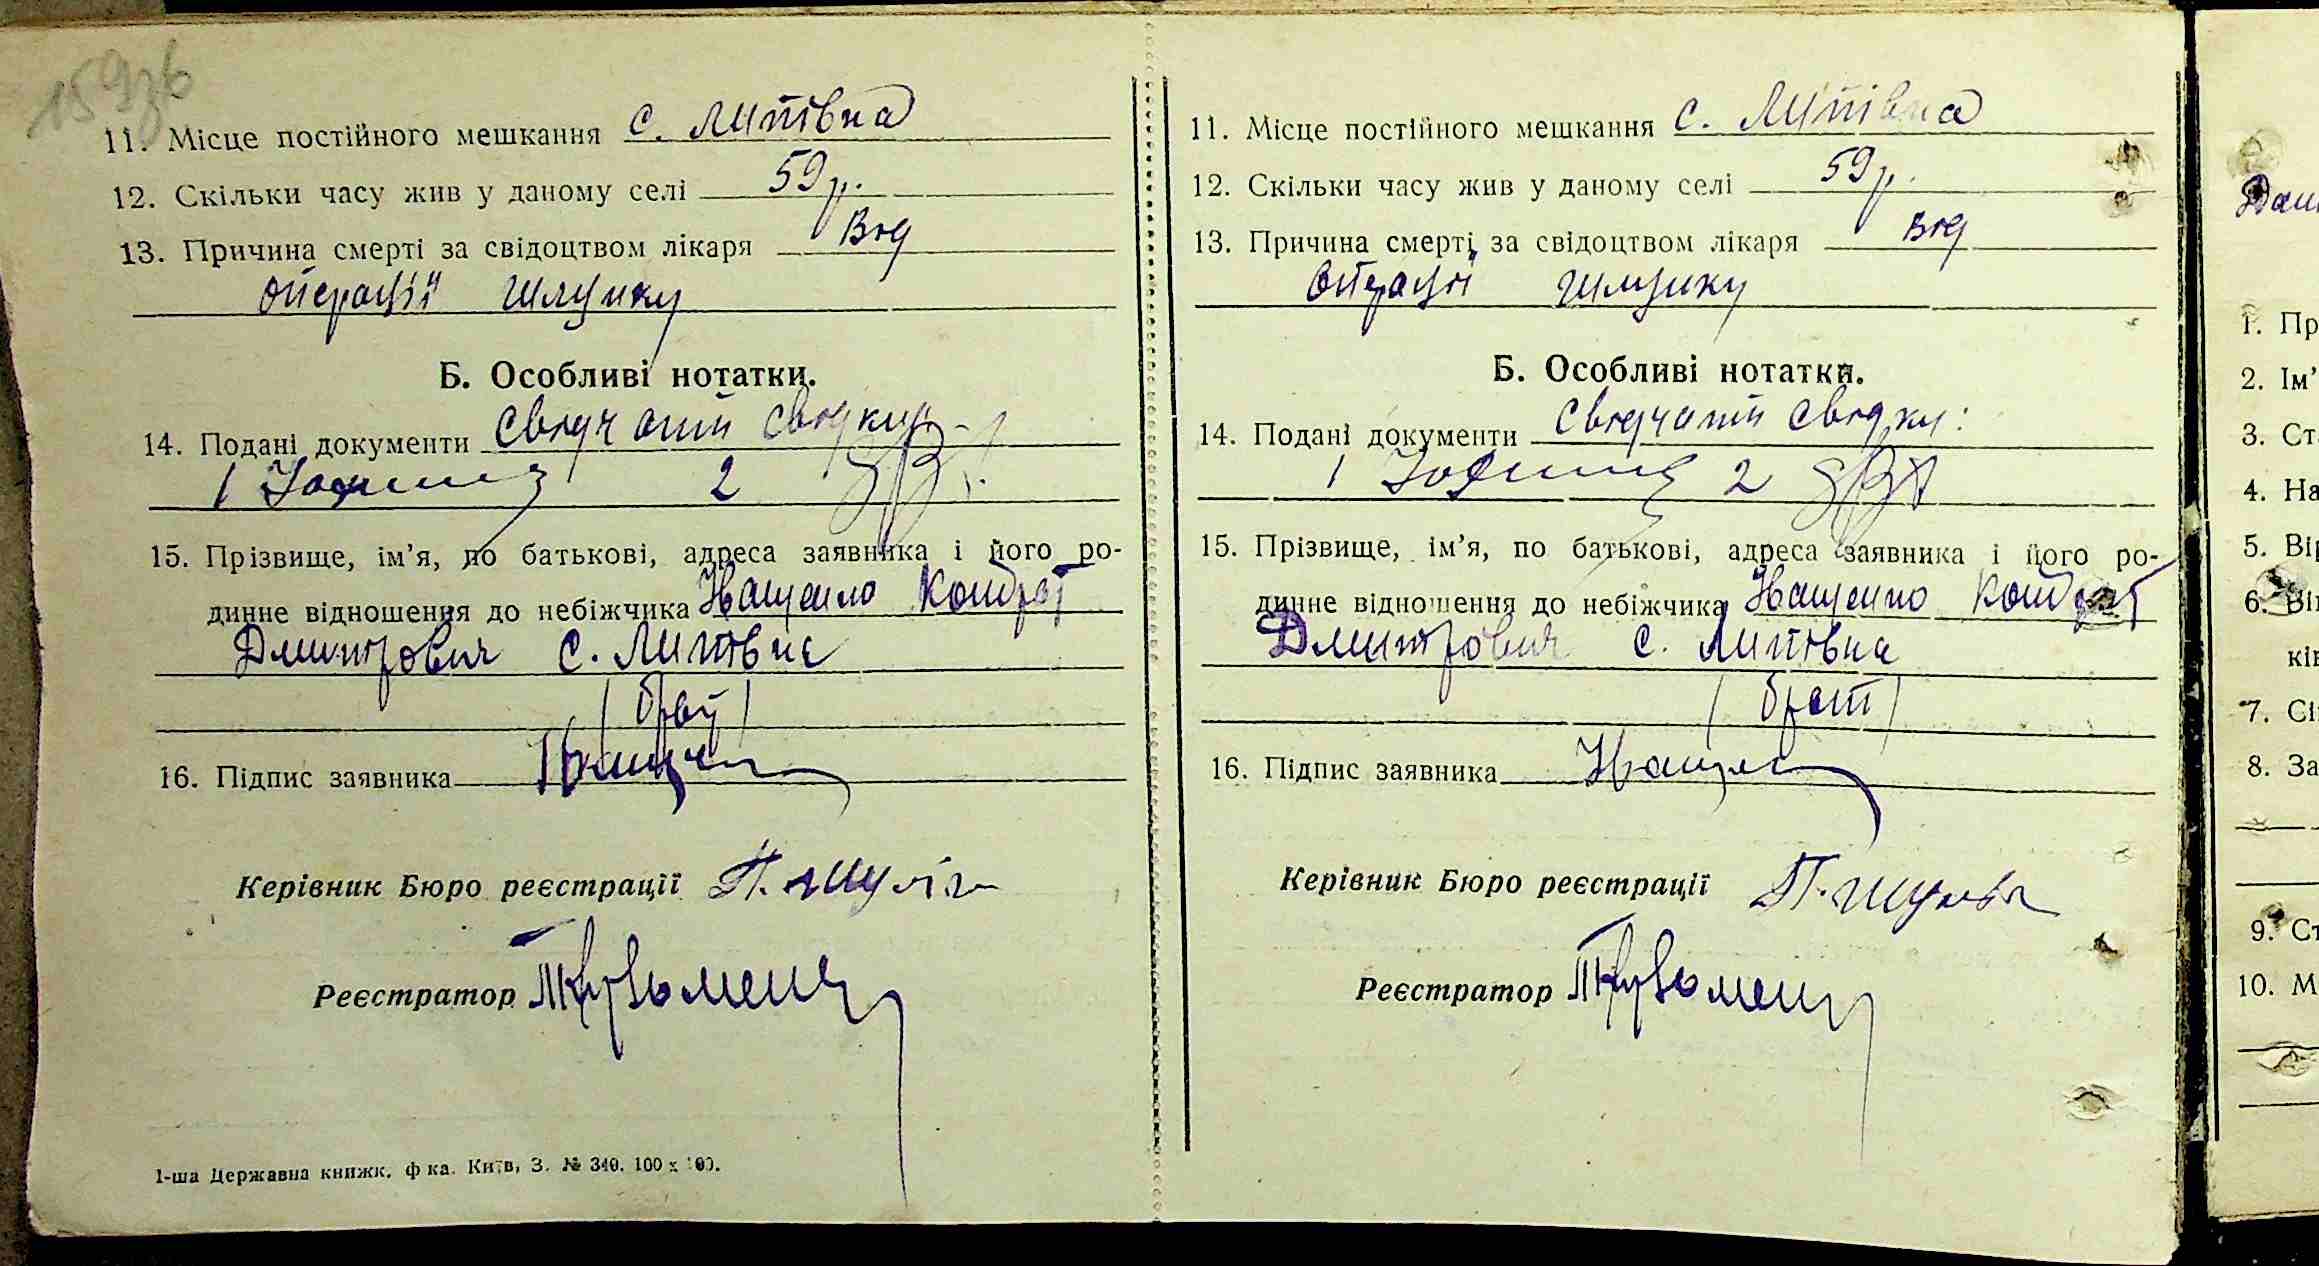 159зв
11. Місце постійного мешкання с. Липівка
12. Скільки часу жив у даному селі 59 р.
13. Причина смерті за свідоцтвом лікаря Від
операції шлунку
Б. Особливі нотатки.
14. Подані документи свідчать свідки
1 2
15. Прізвище, ім'я, по батькові, адреса заявника і його ро-
динне відношення до небіжчика Іващенко Кондрат
Дмитрович с. Липівка
(брат)
16. Підпис заявника Іващен
Керівник Бюро реєстрації П.
Реєстратор
1-ша Державна книжк. ф-ка. Київ, З. № 340. 100 х 100.
11. Місце постійного мешкання с. Липівка
12. Скільки часу жив у даному селі 59 р.
13. Причина смерті за свідоцтвом лікаря Від
операції шлунку
Б. Особливі нотатки.
14. Подані документи свідчать свідки:
1 2
15. Прізвище, ім'я, по батькові, адреса заявника і його ро-
динне відношення до небіжчика Іващенко Кондрат
Дмитрович с. Липівка
(брат)
16. Підпис заявника Іващен
Керівник Бюро реєстрації П.
Реєстратор
1. Пр
2. Ім'
3. Ст
4. На
5. Ві
6. Ві
кі
7. Сі
8. За
9. Ст
10. М